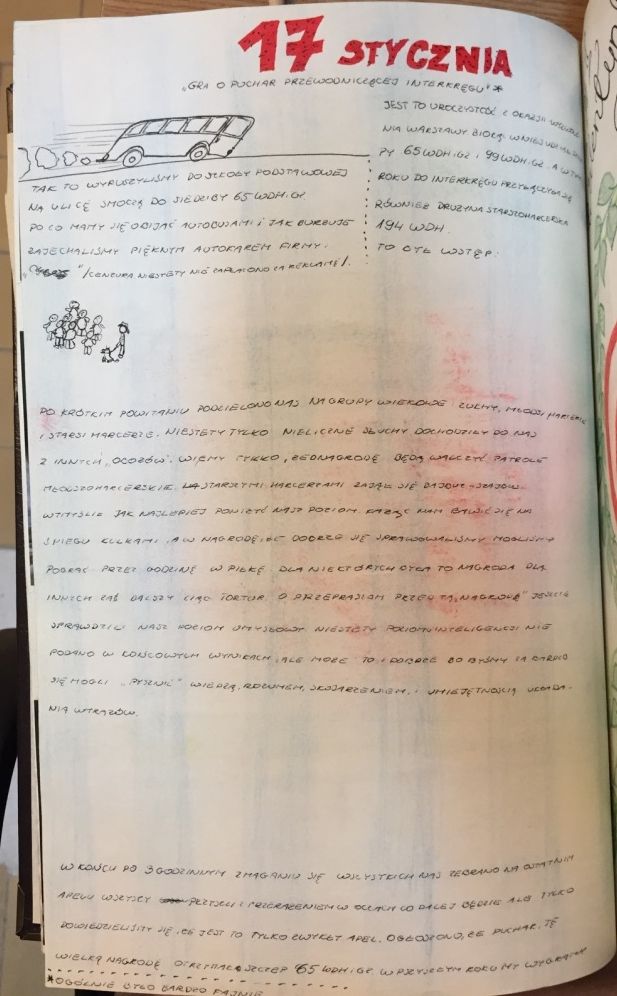 17 STYCZNIA
"GRA O PUCHAR PRZEWODNICZĄCEJ INTERKRĘGU" *
JEST TO UROCZYSTOŚĆ Z OKAZJI
NIA WARSZAWY BIORĄ W NIEJ UDZIAŁ
PY 65 WDH.iGZ i 99 WDH.iGZ. A W TYM
ROKU DO INTERKRĘGU PRZYŁĄCZYŁA SIĘ
RÓWNIEŻ DRUŻYNA STARSZOHARCERSKA
194 WDH.
TO TYLE WSTĘP.
TAK TO WYRUSZYLIŚMY DO SZKOŁY PODSTAWOWEJ
NA ULICĘ SMOCZĄ DO SIEDZIBY 65 WDH.iGZ
PO CO MAMY SIĘ OBIJAĆ AUTOBUSAMI I JAK BURŻUJE
ZAJECHALIŚMY PIĘKNYM AUTOKAREM FIRMY.
/CENZURA NIESTETY NIE ZAPŁACONO ZA REKLAMĘ/.
PO KRÓTKIM POWITANIU PODZIELONO NAS NA GRUPY WIEKOWE ZUCHY, MŁODSI HARCERZE
I STARSI HARCERZE. NIESTETY TYLKO NIELICZNE SŁUCHY DOCHODZIŁY DO NAS
Z INNYCH "OBOZÓW". WIEMY TYLKO, ŻE O NAGRODĘ BĘDĄ WALCZYĆ PATROLE
MŁODSZOHARCERSKIE. STARSZYMI HARCERZAMI ZAJĄŁ SIĘ
WYMYŚLIŁ JAK NAJLEPIEJ PONIŻYĆ NASZ POZIOM. KAŻĄC NAM BAWIĆ SIĘ NA
ŚNIEGU KULKAMI, A W NAGRODĘ, ŻE DOBRZE SIĘ SPRAWOWALIŚMY MOGLIŚMY
POGRAĆ PRZEZ GODZINĘ W PIŁKĘ. DLA NIEKTÓRYCH BYŁA TO NAGRODA DLA
INNYCH ZAŚ DALSZY CIĄG TORTUR. O PRZEPRASZAM PRZED TĄ "NAGRODĄ" JESZCZE
SPRAWDZILI NASZ POZIOM UMYSŁOWY. NIESTETY POZIOMU INTELIGENCJI NIE
PODANO W KOŃCOWYCH WYNIKACH, ALE MOŻE TO I DOBRZE BO BYŚMY ZA BARDZO
SIĘ MOGLI "PYSZNIĆ" WIEDZĄ, ROZUMEM, SKOJARZENIEM, I UMIEJĘTNOŚCIĄ UKŁADA-
NIA WYRAZÓW.
W KOŃCU PO 3 GODZINNYM ZMAGANIU SIĘ WSZYSTKICH NAS ZEBRANO NA OSTATNIM
APELU WSZYSCY PRZYSZLI Z PRZERAŻENIEM W OCZACH CO DALEJ BĘDZIE ALE TYLKO
DOWIEDZIELIŚMY SIĘ, ŻE JEST TO TYLKO ZWYKŁY APEL. OGŁOSZONO, ŻE PUCHAR, TĘ
WIELKĄ NAGRODĘ OTRZYMAŁ SZCZEP 65 WDH.iGZ W PRZYSZŁYM ROKU MY WYGRAMY
* OGÓLNIE BYŁO BARDZO FAJNIE